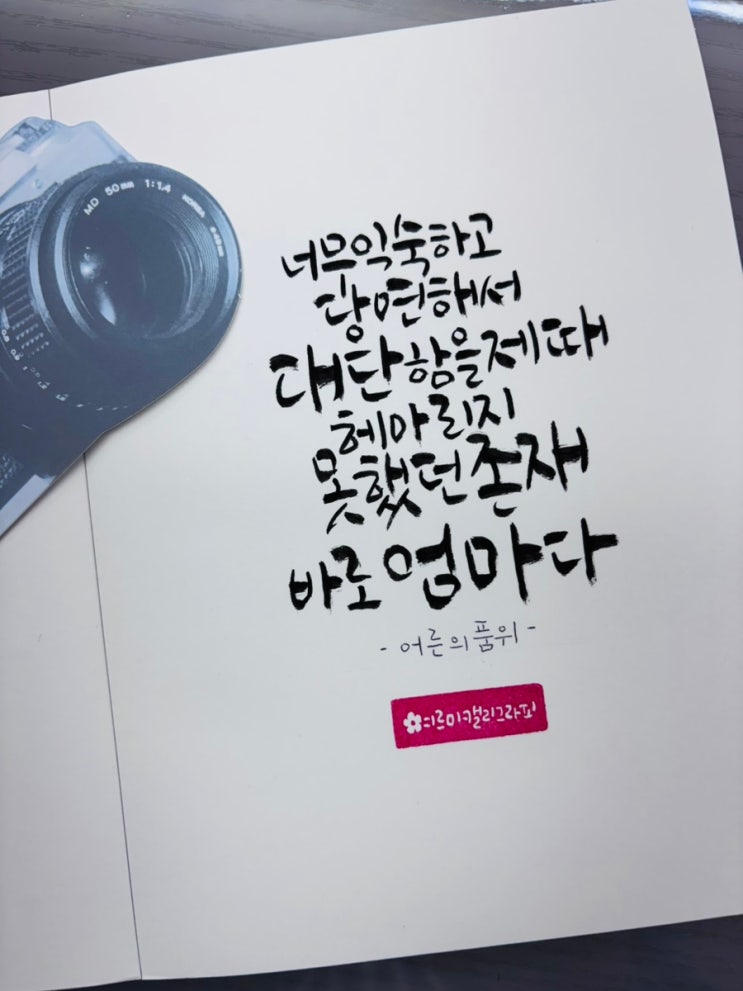 MD 50mm 1:1.4
너므익숙하고
당연해서
대단함을제때
헤아리지
못했던존재
바로엄마다
- 어른의품위 -
캘리그라피